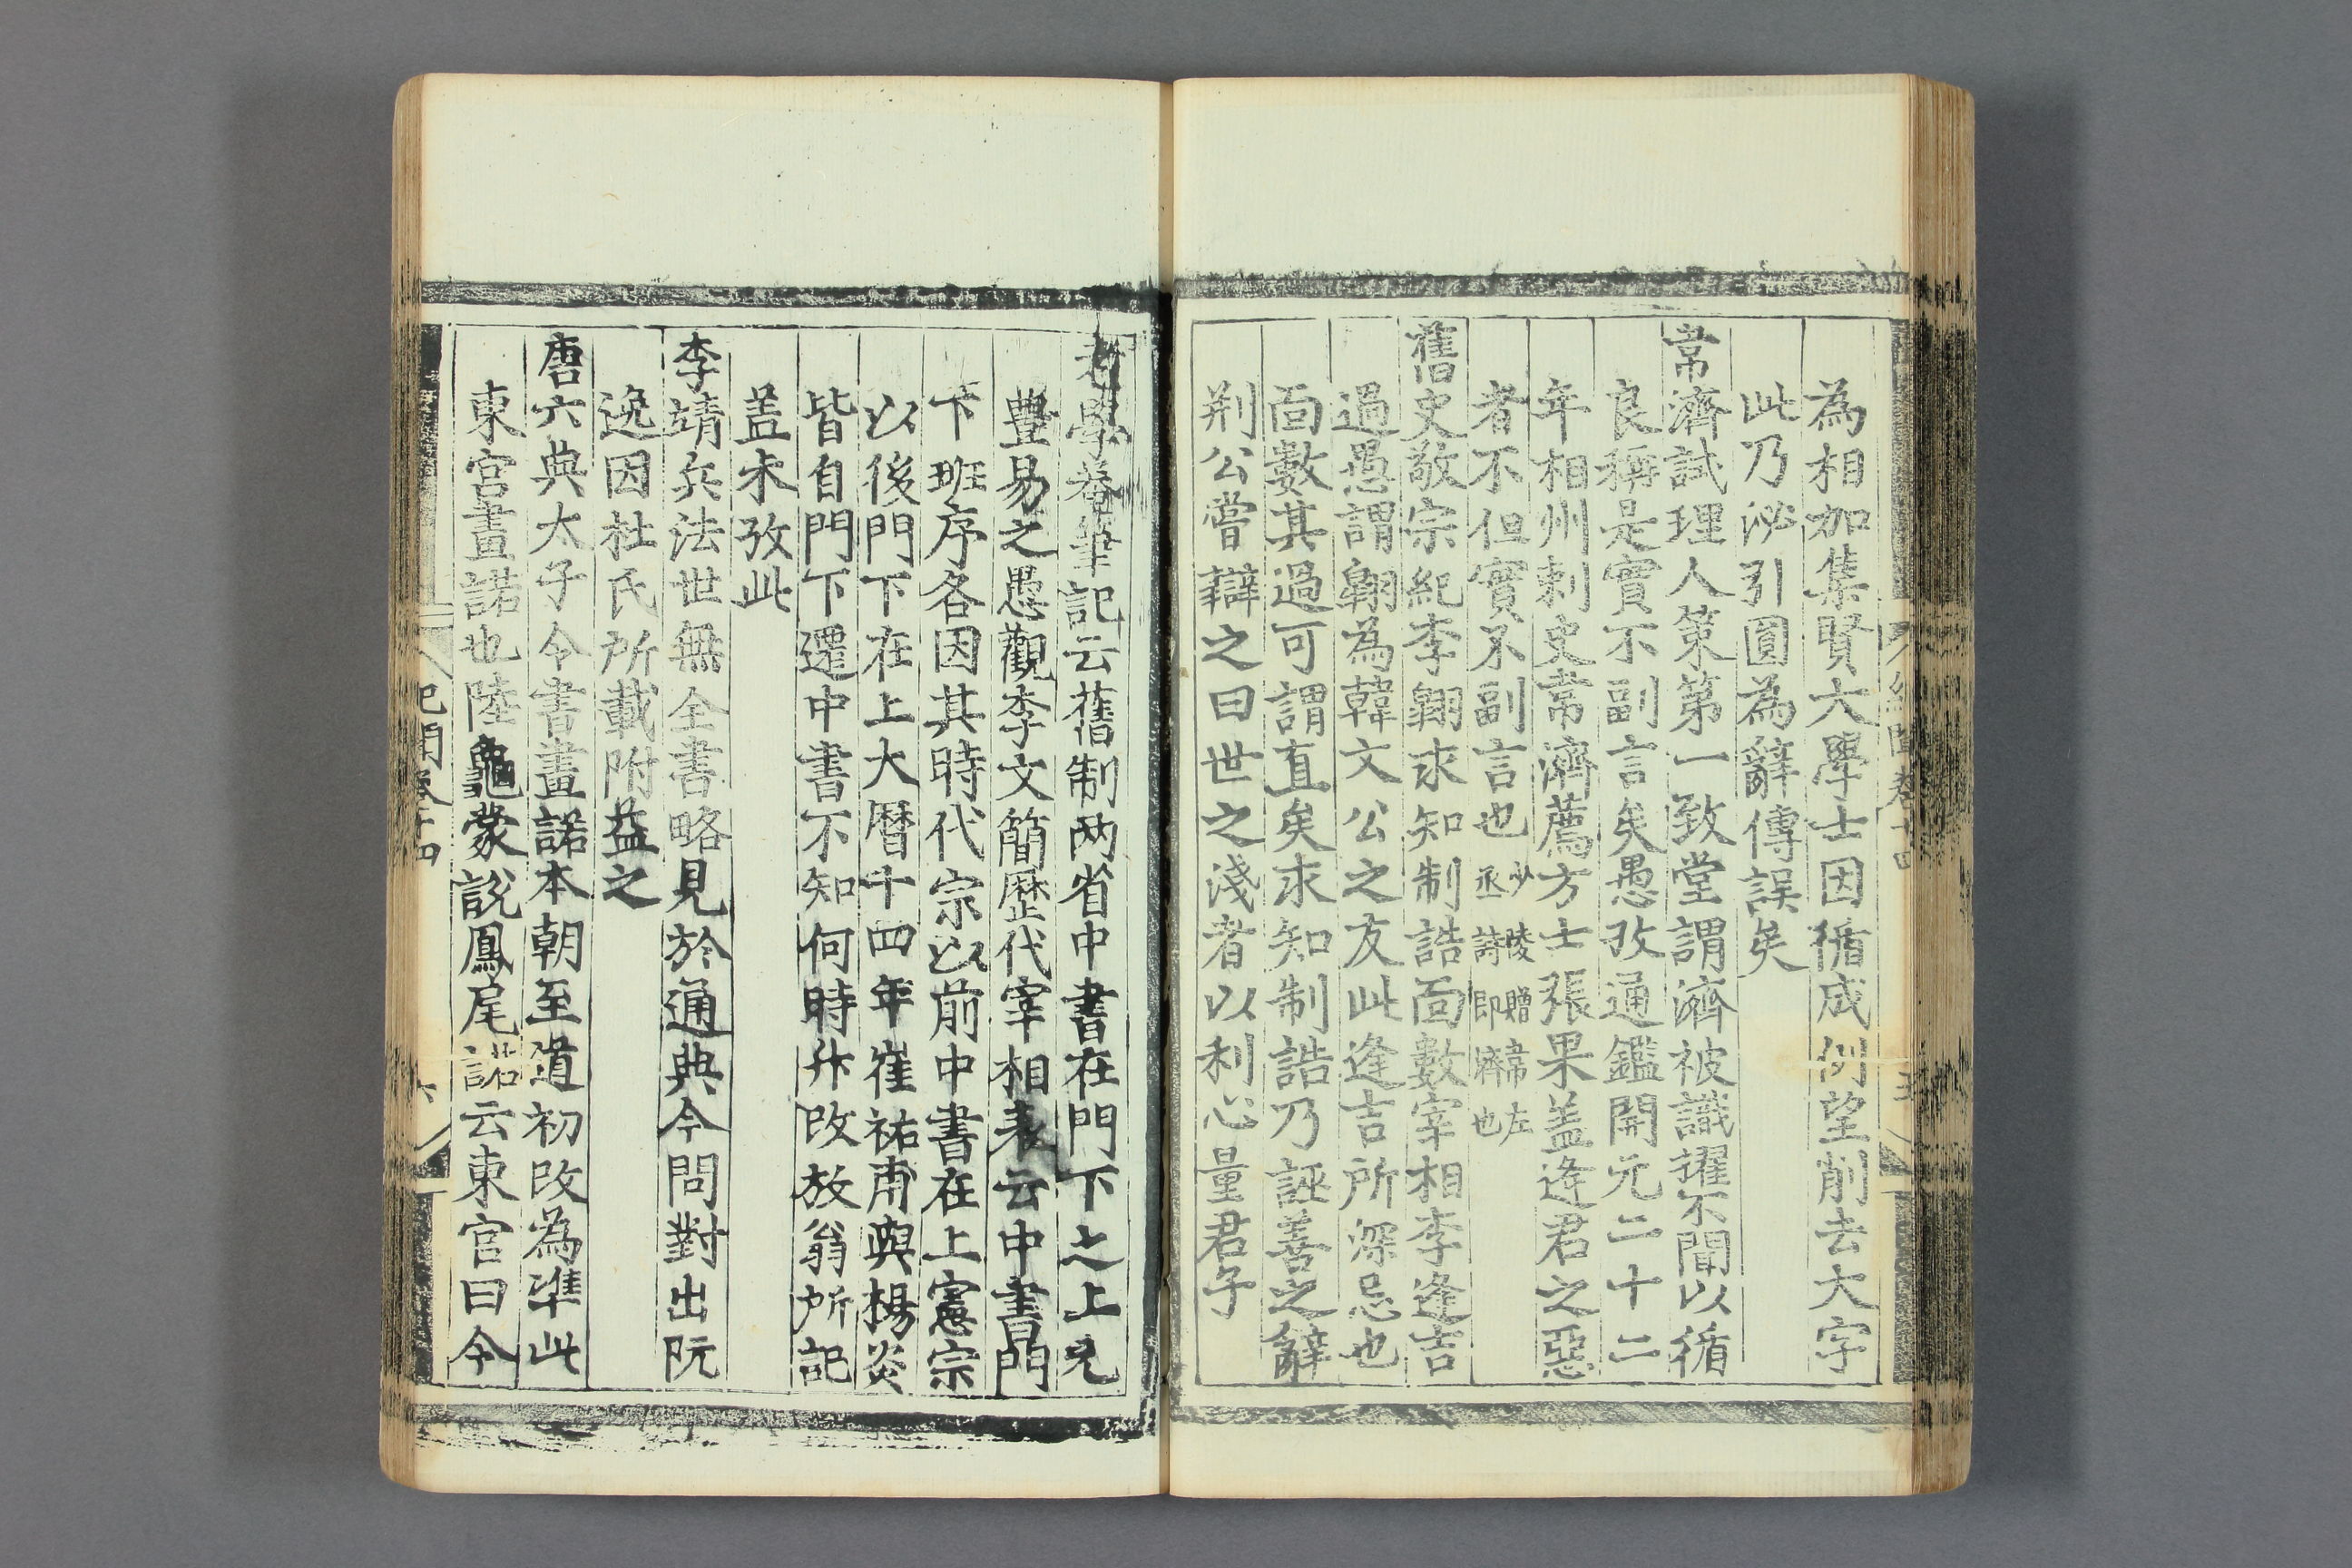 為相加集賢大學士因循成例望削去大字
此乃泌引圓為辭傳誤矣
常濟試理人策第一致堂謂濟被識擢不聞以循
良稱是實不副言矣愚攷通鑑開元二十二
年相州刺史常濟薦方士張果盖逢君之惡
者不但實不副言也少陵贈韋左丞詩即濟也
舊史敬宗紀李翺求知制誥靣數宰相李逢吉
過愚謂翺為韓文公之友此逢吉所深忌也
靣數其過可謂直矣求知制誥乃誣善之辭
荆公嘗辯之曰世之淺者以利心量君子
老學菴筆記云舊制两省中書在門下之上元
豐易之愚觀李文簡歷代宰相表云中書門
下班序各因其時代宗以前中書在上憲宗
以後門下在上大曆十四年崔祐甫與楊炎
皆自門下遷中書不知何時升改放翁所記
盖未攷此
李靖兵法世無全書略見於通典今問對出阮
逸因杜氏所載附益之
唐六典太子令書畫諾本朝至道初改為準此
東宮畫諾也陸龜蒙說鳳尾諾云東宫曰令
紀聞卷十四